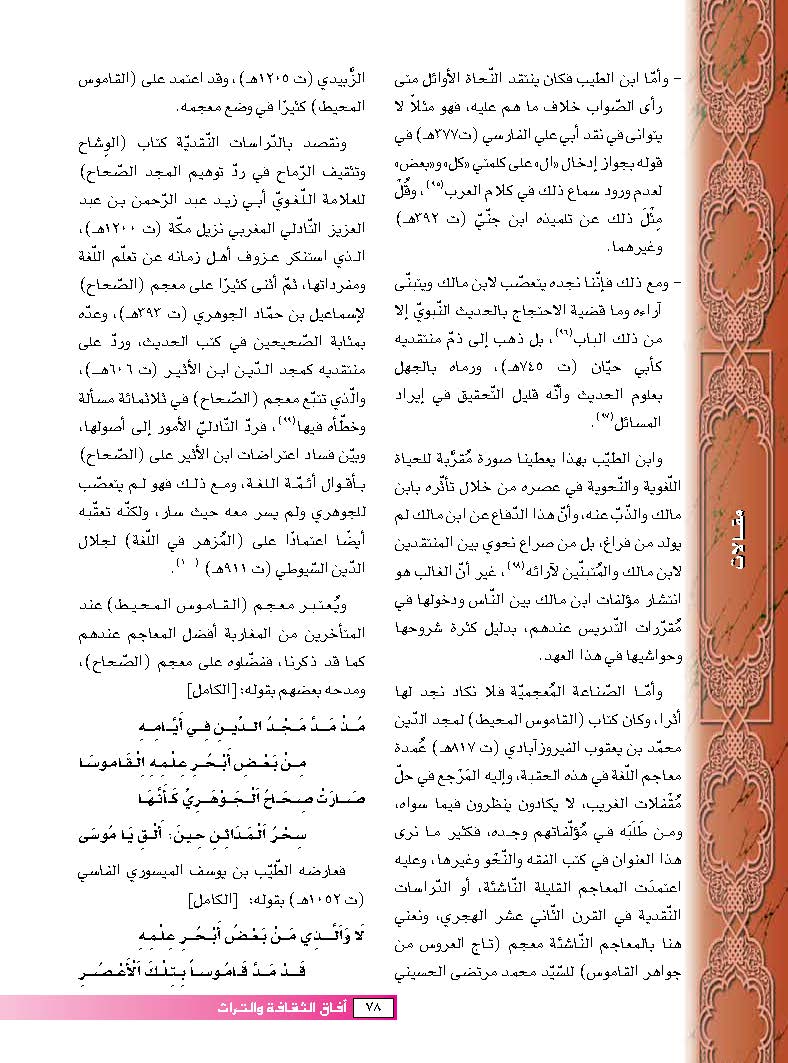 – وأمّا ابن الطيب فكان ينتقد النّحاة الأوائل متى
رأى الصّواب خلاف ما هم عليه، فهو مثلاً لا
يتوانى في نقد أبي علي الفارسي (ت٣٧٧هـ) في
قوله بجواز إدخال «ال» على كلمتي «كل» و«بعض»
لعدم ورود سماع ذلك في كلام العرب(٩٥)، وقُلْ
مِثْلَ ذلك عن تلميذه ابن جنّيّ (ت ٣٩٢هـ)
وغيرهما.
– ومع ذلك فإنّنا نجده يتعصّب لابن مالك ويتبنّى
آراءه وما قضية الاحتجاج بالحديث النّبويّ إلا
من ذلك الباب(٩٦)، بل ذهب إلى ذمّ منتقديه
كأبي حيّان (ت ٧٤٥هـ)، ورماه بالجهل
بعلوم الحديث وأنّه قليل التّحقيق في إيراد
المسائل(٩٧).
وابن الطيّب بهذا يعطينا صورة مُقرَّبة للحياة
اللّغوية والنّحوية في عصره من خلال تأثّره بابن
مالك والذّبّ عنه، وأنّ هذا الدّفاع عن ابن مالك لم
يولد من فراغ، بل من صراع نحوي بين المنتقدين
لابن مالك والمُتبنّين لآرائه(٩٨)، غير أنّ الغالب هو
انتشار مؤلفات ابن مالك بين النّاس ودخولها في
مُقرّرات التّدريس عندهم، بدليل كثرة شروحها
وحواشيها في هذا العهد.
وأمّا الصّناعة المُعجميّة فلا نكاد نجد لها
أثرا، وكان كتاب (القاموس المحيط) لمجد الدّين
محمّد بن يعقوب الفيروزآبادي (ت ٨١٧هـ) عُمدة
معاجم اللّغة في هذه الحقبة، وإليه المَرْجع في حلّ
مُقْفَلات الغريب، لا يكادون ينظرون فيما سواه،
ومن طَلَبَه في مؤلّفاتهم وجده، فكثير ما نرى
هذا العنوان في كتب الفقه والنَّحْو وغيرها، وعليه
اعتمدَت المعاجم القليلة النّاشئة، أو الدّراسات
النّقدية في القرن الثّاني عشر الهجري، ونعني
هنا بالمعاجم النّاشئة معجم (تاج العروس من
جواهر القاموس) للسّيّد محمد مرتضى الحسيني
الزَّبيدي (ت ١٢٠٥هـ)، وقد اعتمد على (القاموس
المحيط) كثيرًا في وضع معجمه.
ونقصد بالدّراسات النّقديّة كتاب (الوِشاح
وتثقيف الرّماح في ردّ توهيم المجد الصّحاح)
للعلامة اللّغويّ أبي زيد عبد الرّحمن بن عبد
العزيز التّادلي المغربي نزيل مكّة (ت ١٢٠٠هـ)،
الذي استنكر عزوف أهل زمانه عن تعلّم اللّغة
ومفرداتها، ثمّ أثنى كثيرًا على معجم (الصّحاح)
لإسماعيل بن حمّاد الجوهري (ت ٣٩٣هـ)، وعدّه
بمثابة الصّحيحين في كتب الحديث، وردّ على
منتقديه كمجد الدّين ابن الأثير (ت ٦٠٦هـ)،
والّذي تتبّع معجم (الصّحاح) في ثلاثمائة مسألة
وخطّأه فيها(٩٩)، فردّ التّادليّ الأمور إلى أصولها،
وبيّن فساد اعتراضات ابن الأثير على (الصّحاح)
بأقوال أئمّة اللغة، ومع ذلك فهو لم يتعصّب
للجوهري ولم يسر معه حيث سار، ولكنّه تعقّبه
أيضًا اعتمادًا على (المُزهر في اللّغة) لجلال
الدّين السّيوطي (ت ٩١١هـ) .
ويُعتبر معجم (القاموس المحيط) عند
المتأخرين من المغاربة أفضل المعاجم عندهم
كما قد ذكرنا، ففضّلوه على معجم (الصّحاح)،
ومدحه بعضهم بقوله: [الكامل]
مُذْ مَدَّ مَجْدُ الدِّينِ فِي أَيَّامِهِ
مِنْ بَعْضِ أَبْحُرِ عِلْمِهِ الْقَامُوسَا
صَارَتْ صِحَاحُ الْجَوْهَرِيِّ كَأَنَّهَا
سِحْرُ الْمَدَائِنِ حِينَ: أَلْقِ يَا مُوسَى
فعارضه الطّيّب بن يوسف الميسوري الفاسي
(ت ١٠٥٢هـ) بقوله: [الكامل]
لَا وَالَّذِي مَنْ بَعْضُ أَبْحُرِ عِلْمِهِ
قَدْ مَدَّ قَامُوساً بِتِلْكَ الْأَعْصُرِ
مقالات
٧٨ آفاق الثقافة والتراث